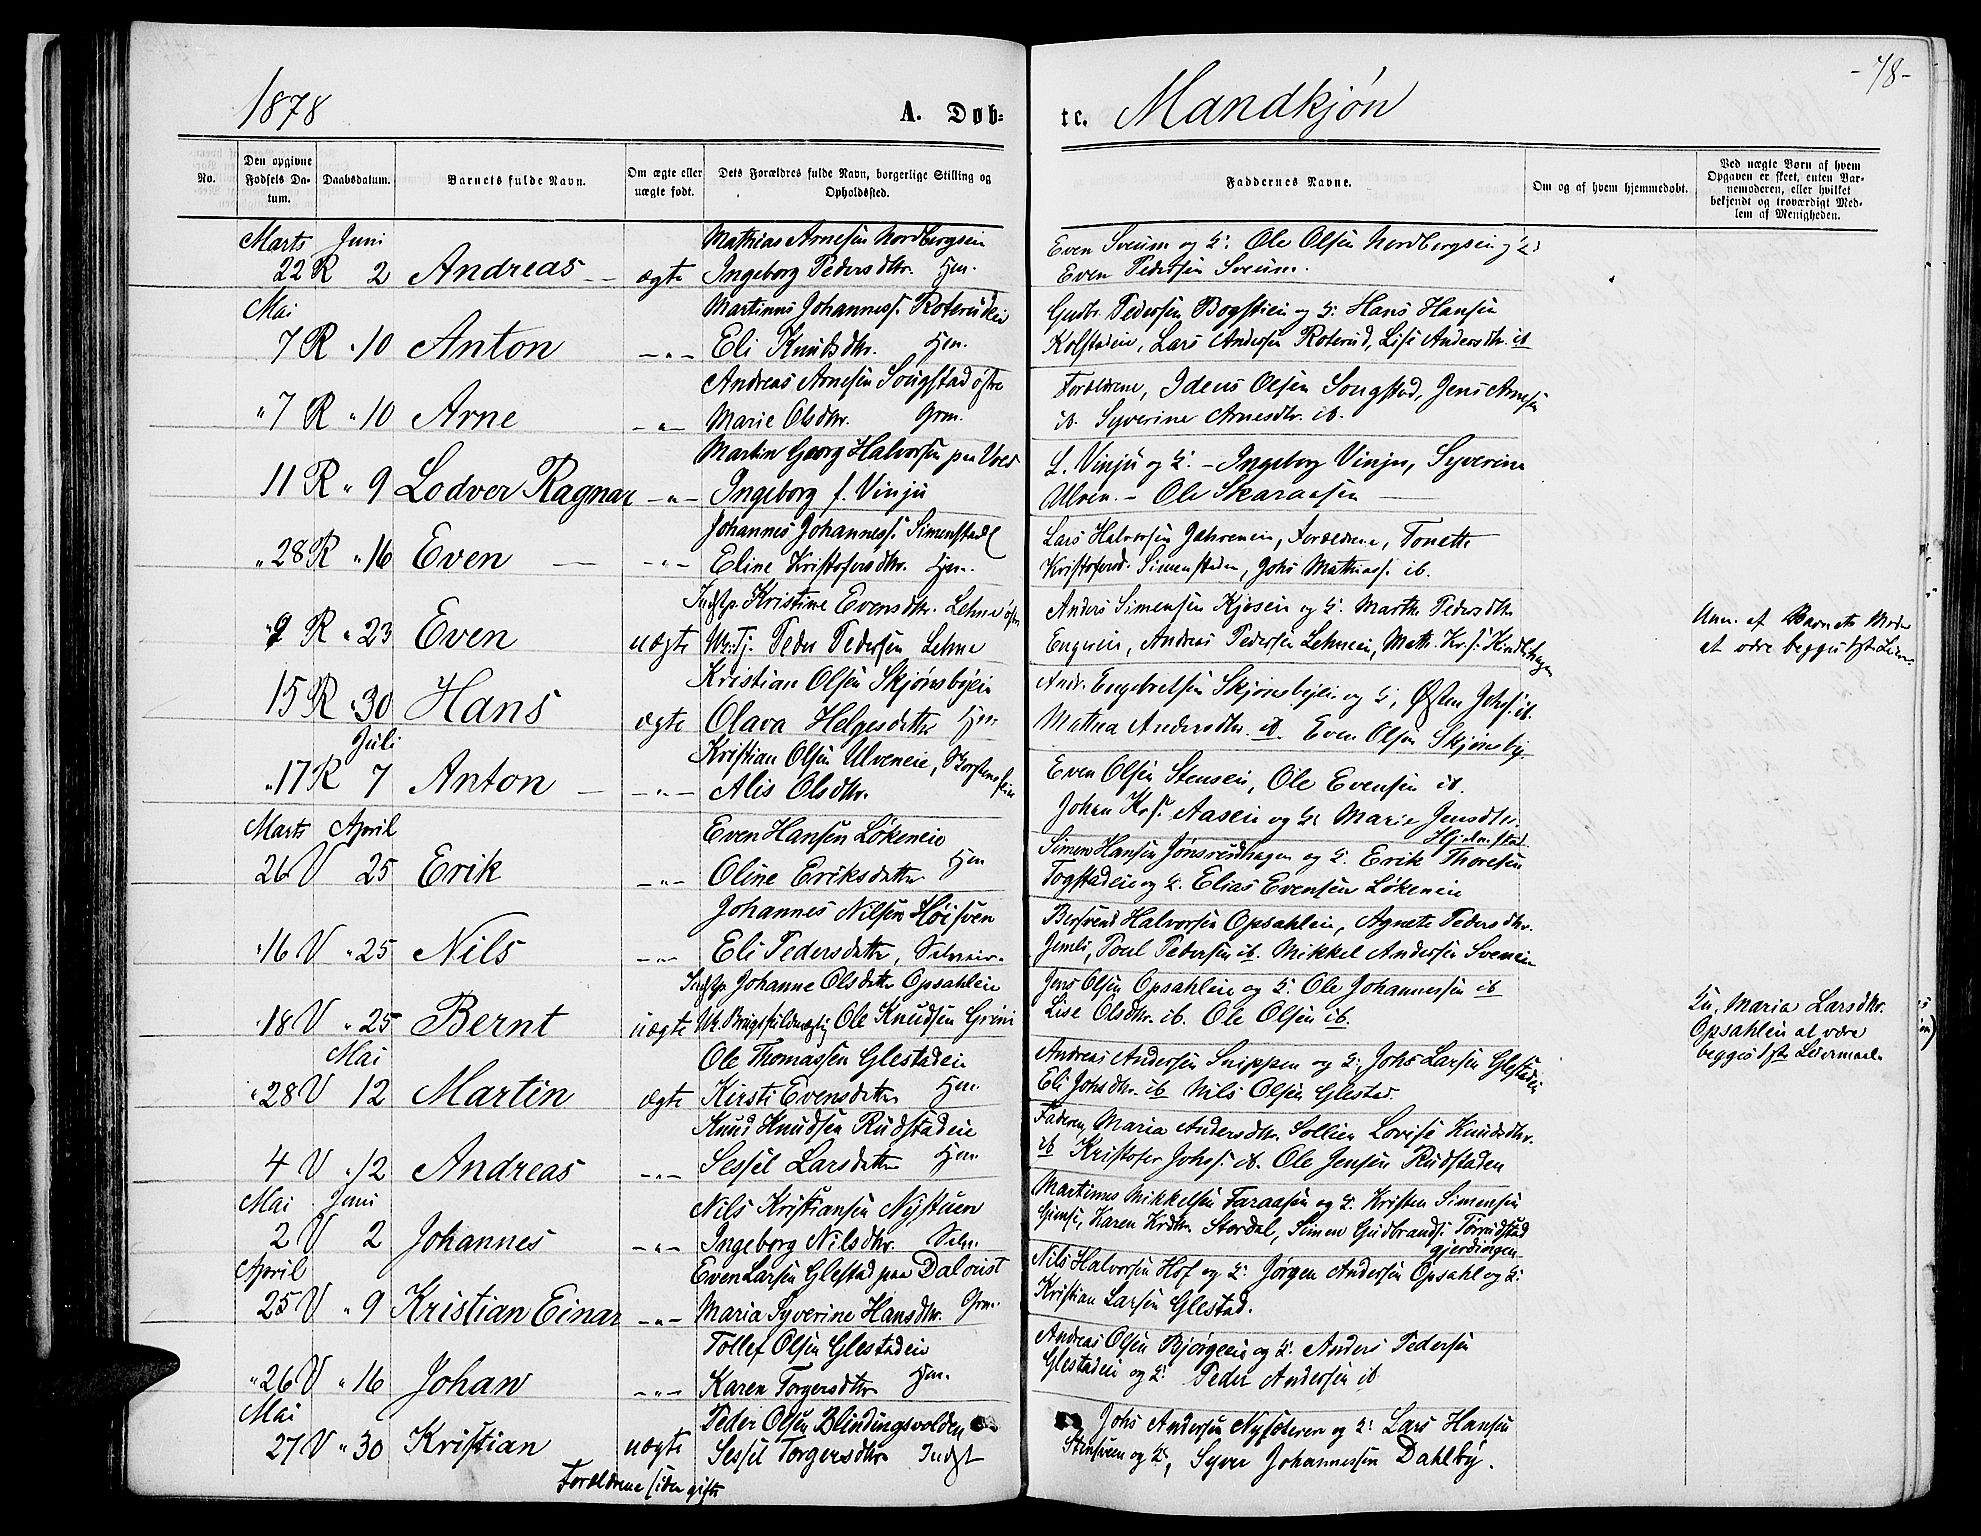 1878
A. Døb-
te. Mandkjøn
-78-
No.
Den opgivne Fødsels Da-tum.
Daabsdatum.
Barnets fulde Navn.
Om ægte eller uægte født.
Dets Forældres fulde Navn, borgerlige Stilling og Opholdssted.
Faddernes Navne.
Om og af hvem hjemmedøbt.
Ved uægte Børn af hvem Opgaven er skeet, enten Bar-nemoderen, eller hvilket bekjendt og troværdigt Med-lem af Menigheden.
Marts Juni Mathias Arnesen Nordbergseie Even Sveum og H. Ole Olsen Nordbergseie g H.
22 R 2 Andreas ægte Ingeborg Pedersdtr. Hm. Even Pedersen Sveum.
Mai Martinus Johanness. Roterudeie Gudbr. Pedersen Bogstieie og H. Hans Hansen
7 R " 10 Anton - " - Eli Knudsdtr. Hm. Kolstadeie, Lars Andersen Roterud, Lise Andersdtr. ib
Andreas Arnesen Songstad østre Forældrene, Ideus Olsen Songstad, Jens Arnesen
" 7 R " 10 Arne - " - Marie Olsdtr. Grm. ib. Syverine Arnesdtr. ib.
Martin Georg Halvorsen paa L. Vinju og H. - Ingeborg Vinju, Syverine
11 R " 9 Lodver Ragnar - " - Ingeborg f. Vinju Ulven. - Ole Skaraasen
Johannes Johanness. Simenstad Lars Halvorsen Jahreneie, Forældrene, Tonette
" 28 R " 16 Even - " - Eline Kristofersdtr. Hm. Kristofersd. Simenstaden, Johs Mathiass. ib.
Indst. Kristine Evensdtr. Lehne østre Anders Simensen Kjoseie og H. Marthe Pedersdtr
9 R " 23 Even uægte Uk. Tj. Peder Pedersen Lehne Engeneie, Andreas Pedersen Lehneeie, Math. Kr.s. Kindlihagen
Anm. af Barnets Moder
at være begges 1ste Leierm.
Kristian Olsen Skjønsbyeie Andr. Engebretsen Skjønsbyeie og H., Østen Johs. ib.
15 R " 30 Hans ægte Olava Helgesdatter Hm Mathea Andersdtr. ib. Even Olsen Skjønsby.
Juli Kristian Olsen Ulveneie, Even Olsen Stenseie, Ole Evensen ib.
" 17 R 7 Anton - " - Alis Olsdtr. Johan Kr.s. Aaseie og H. Marie Jensdtr.
Marts April Even Hansen Løkeneie Simen Hansen Jønsrudhagen og H. Erik Thoresen
26 V 25 Erik - " - Oline Eriksdatter Hm Togstadeie og H. Elias Evensen Løkeneie
Johannes Nilsen Høisveen Bersvend Halvorsen Opsahleie, Agnete Pedersdtr.
" 16 V " 25 Nils - " - Eli Pedersdatter, Selveier. Jemli, Poul Pedersen ib. Mikkel Andersen Sveneie
Indst. Johanne Olsdatter Opsahleie Jens Olsen Opsahleie og H. Ole Johannessen ib
" 18 V " 25 Bernt uægte Uk. Brugsfuldmægtig Ole Knudsen Grini Lise Olsdtr. ib. Ole Olsen ib.
Gu. Maria Larsdtr.
Opsahleie at være
begges 1ste Leiermaal
Mai Ole Thomassen Glestadeie Andreas Andersen Snippen og H. Johs Larsen Glestadeie
" 28 V 12 Martin ægte Kirsti Evensdatter Hm. Eli Johsdtr. ib Nils Olsen Glestad.
Knud Knudsen Rudstadeie Faderen, Maria Andersdtr. Sollien Lovise Knudsdtr.
4 V " 12 Andreas - " - Sessel Larsdatter Hm ib Kristofer Johs. ib. Ole Jensen Rudstaden
Mai Juni Nils Kristiansen Nystuen Martinus Mikkelsen Faraasen og H. Kristen Simensen
2 V 2 Johannes - " - Ingeborg Nilsdtr. Selv. Gimse, Karen Krdtr. Stordal, Simen Gudbrands. Torrudstad
gjerdingen
April Even Larsen Glestad paa Daloust Nils Halvorsen Hof og H. Jørgen Andersen Opsahl og H.
25 V " 9 Kristian Einar - " - Maria Syverine Hansdtr. Grm. Kristian Larsen Glestad.
Tollef Olsen Glestadeie Andreas Olsen Bjørgeeie og H. Anders Pedersen
" 26 V " 16 Johan - " - Karen Torgersdtr Hm. Glestadeie og H. Peder Andersen ib.
Mai Peder Olsen Blindingsvolden Johs Andersen Nysæteren og H. Lars Hansen
27 V " 30 Kristian uægte Sessel Torgersdtr Indst Stensveen og H, Syver Johannessen Dahlby.
Forældrene siden gifte